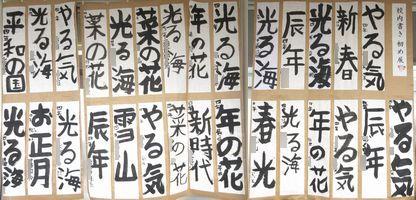 校内書き初め展
やる気
新春
光る海
辰年
光る海
光る海
年の花
光る海
菜の花
光る海
菜の花
やる気
光る海
平和の国
光る海
やる気
辰年
年の花
光る海
春光
年の花
新時代
菜の花
やる気
雪山
辰年
光る海
お正月
光る海